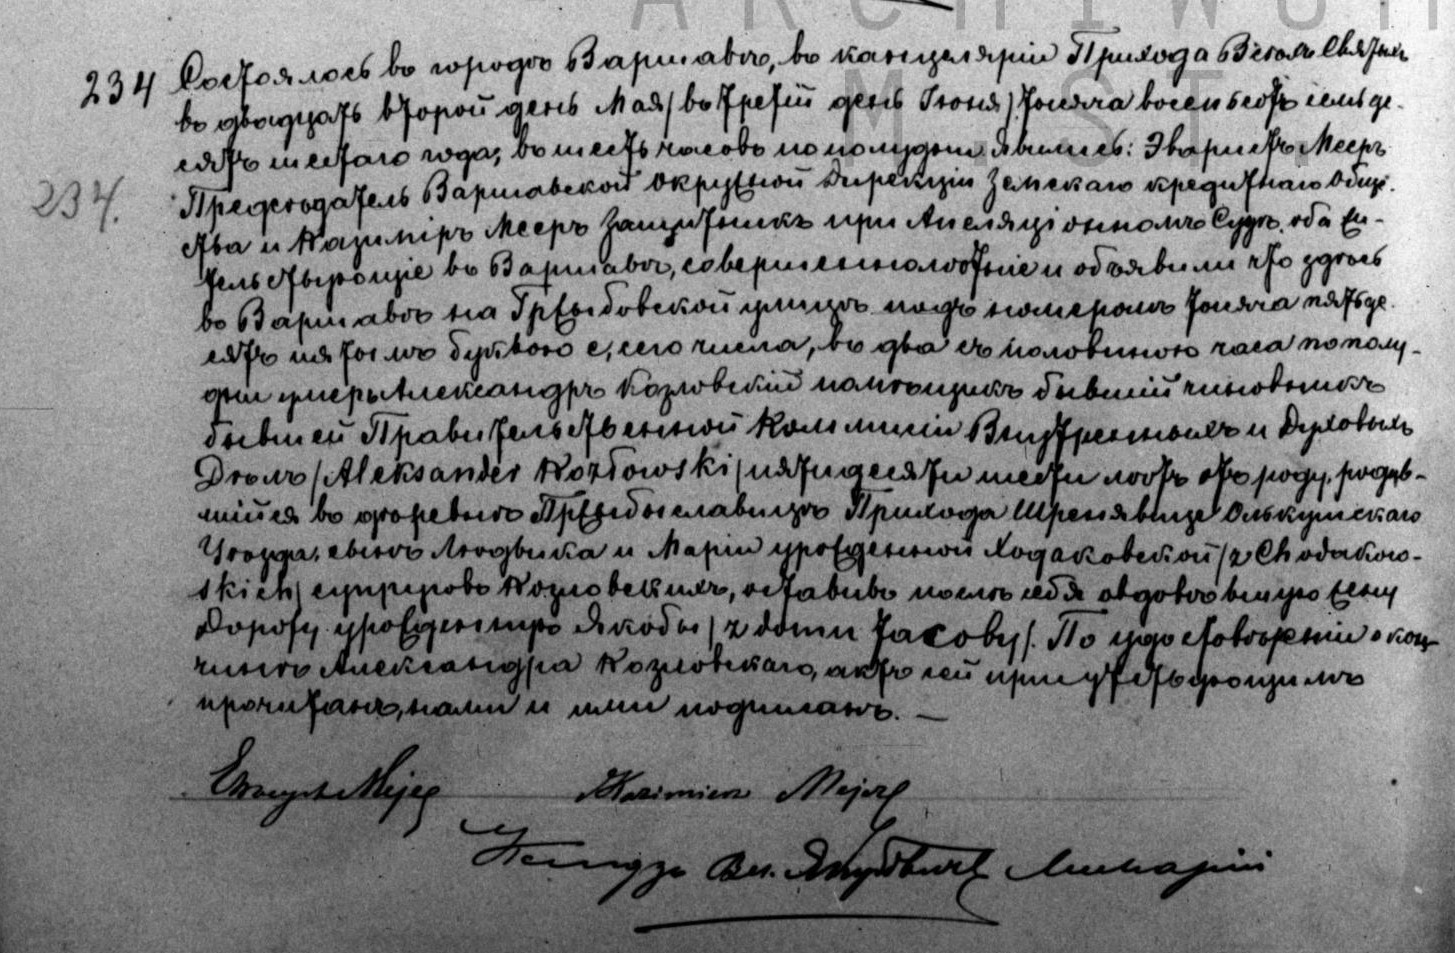 ARCHIWUM
M. ST.
234 Состоялось въ городѣ Варшавѣ, въ канцеляріи Прихода Всѣхъ Святыхъ
въ двадцать второй день Мая/въ третій день Іюня/тысяча восемьсотъ семьде-
сятъ шестаго года, въ шесть часовъ пополудни явились: Эваристъ Мееръ
234. Предсѣдатель Варшавской Окружной Дирекціи Земскаго кредитнаго Обще-
ства и Казимиръ Мееръ Защитникъ при Апеляціонномъ Судѣ, оба жи-
тельствующіе въ Варшавѣ, совершеннолѣтніе и объявили что здѣсь
въ Варшавѣ на Гржибовской улицѣ подъ номеромъ тысяча пятьде-
сятъ пятымъ буквою с, сего числа, въ два съ половиною часа пополу-
дни умеръ Александръ Козловскій помѣщикъ бывшій чиновникъ
бывшей Правительственной Коммисіи Внутреннихъ и Духовыхъ
Дѣлъ/Aleksander Kozłowski/пятидесяти шести лѣтъ отъ роду, родив-
шійся въ деревнѣ Пржибыславицѣ Прихода Шренявице Олькушскаго
Уѣзда, сынъ Людвика и Маріи урожденной Ходаковской/z Chodakow-
skich/супруговъ Козловскихъ, оставивъ послѣ себя овдовѣвшую жену
Дороту урожденную Якобы/z domu Jacoby/. По удостовѣреніи о кон-
чинѣ Александра Козловскаго, актъ сей присутствующимъ
прочитанъ, нами и ими подписанъ. —
Ewaryst Mejer Kazimierz Mejer
Ксендзъ Вл. Якубовичъ Викарій